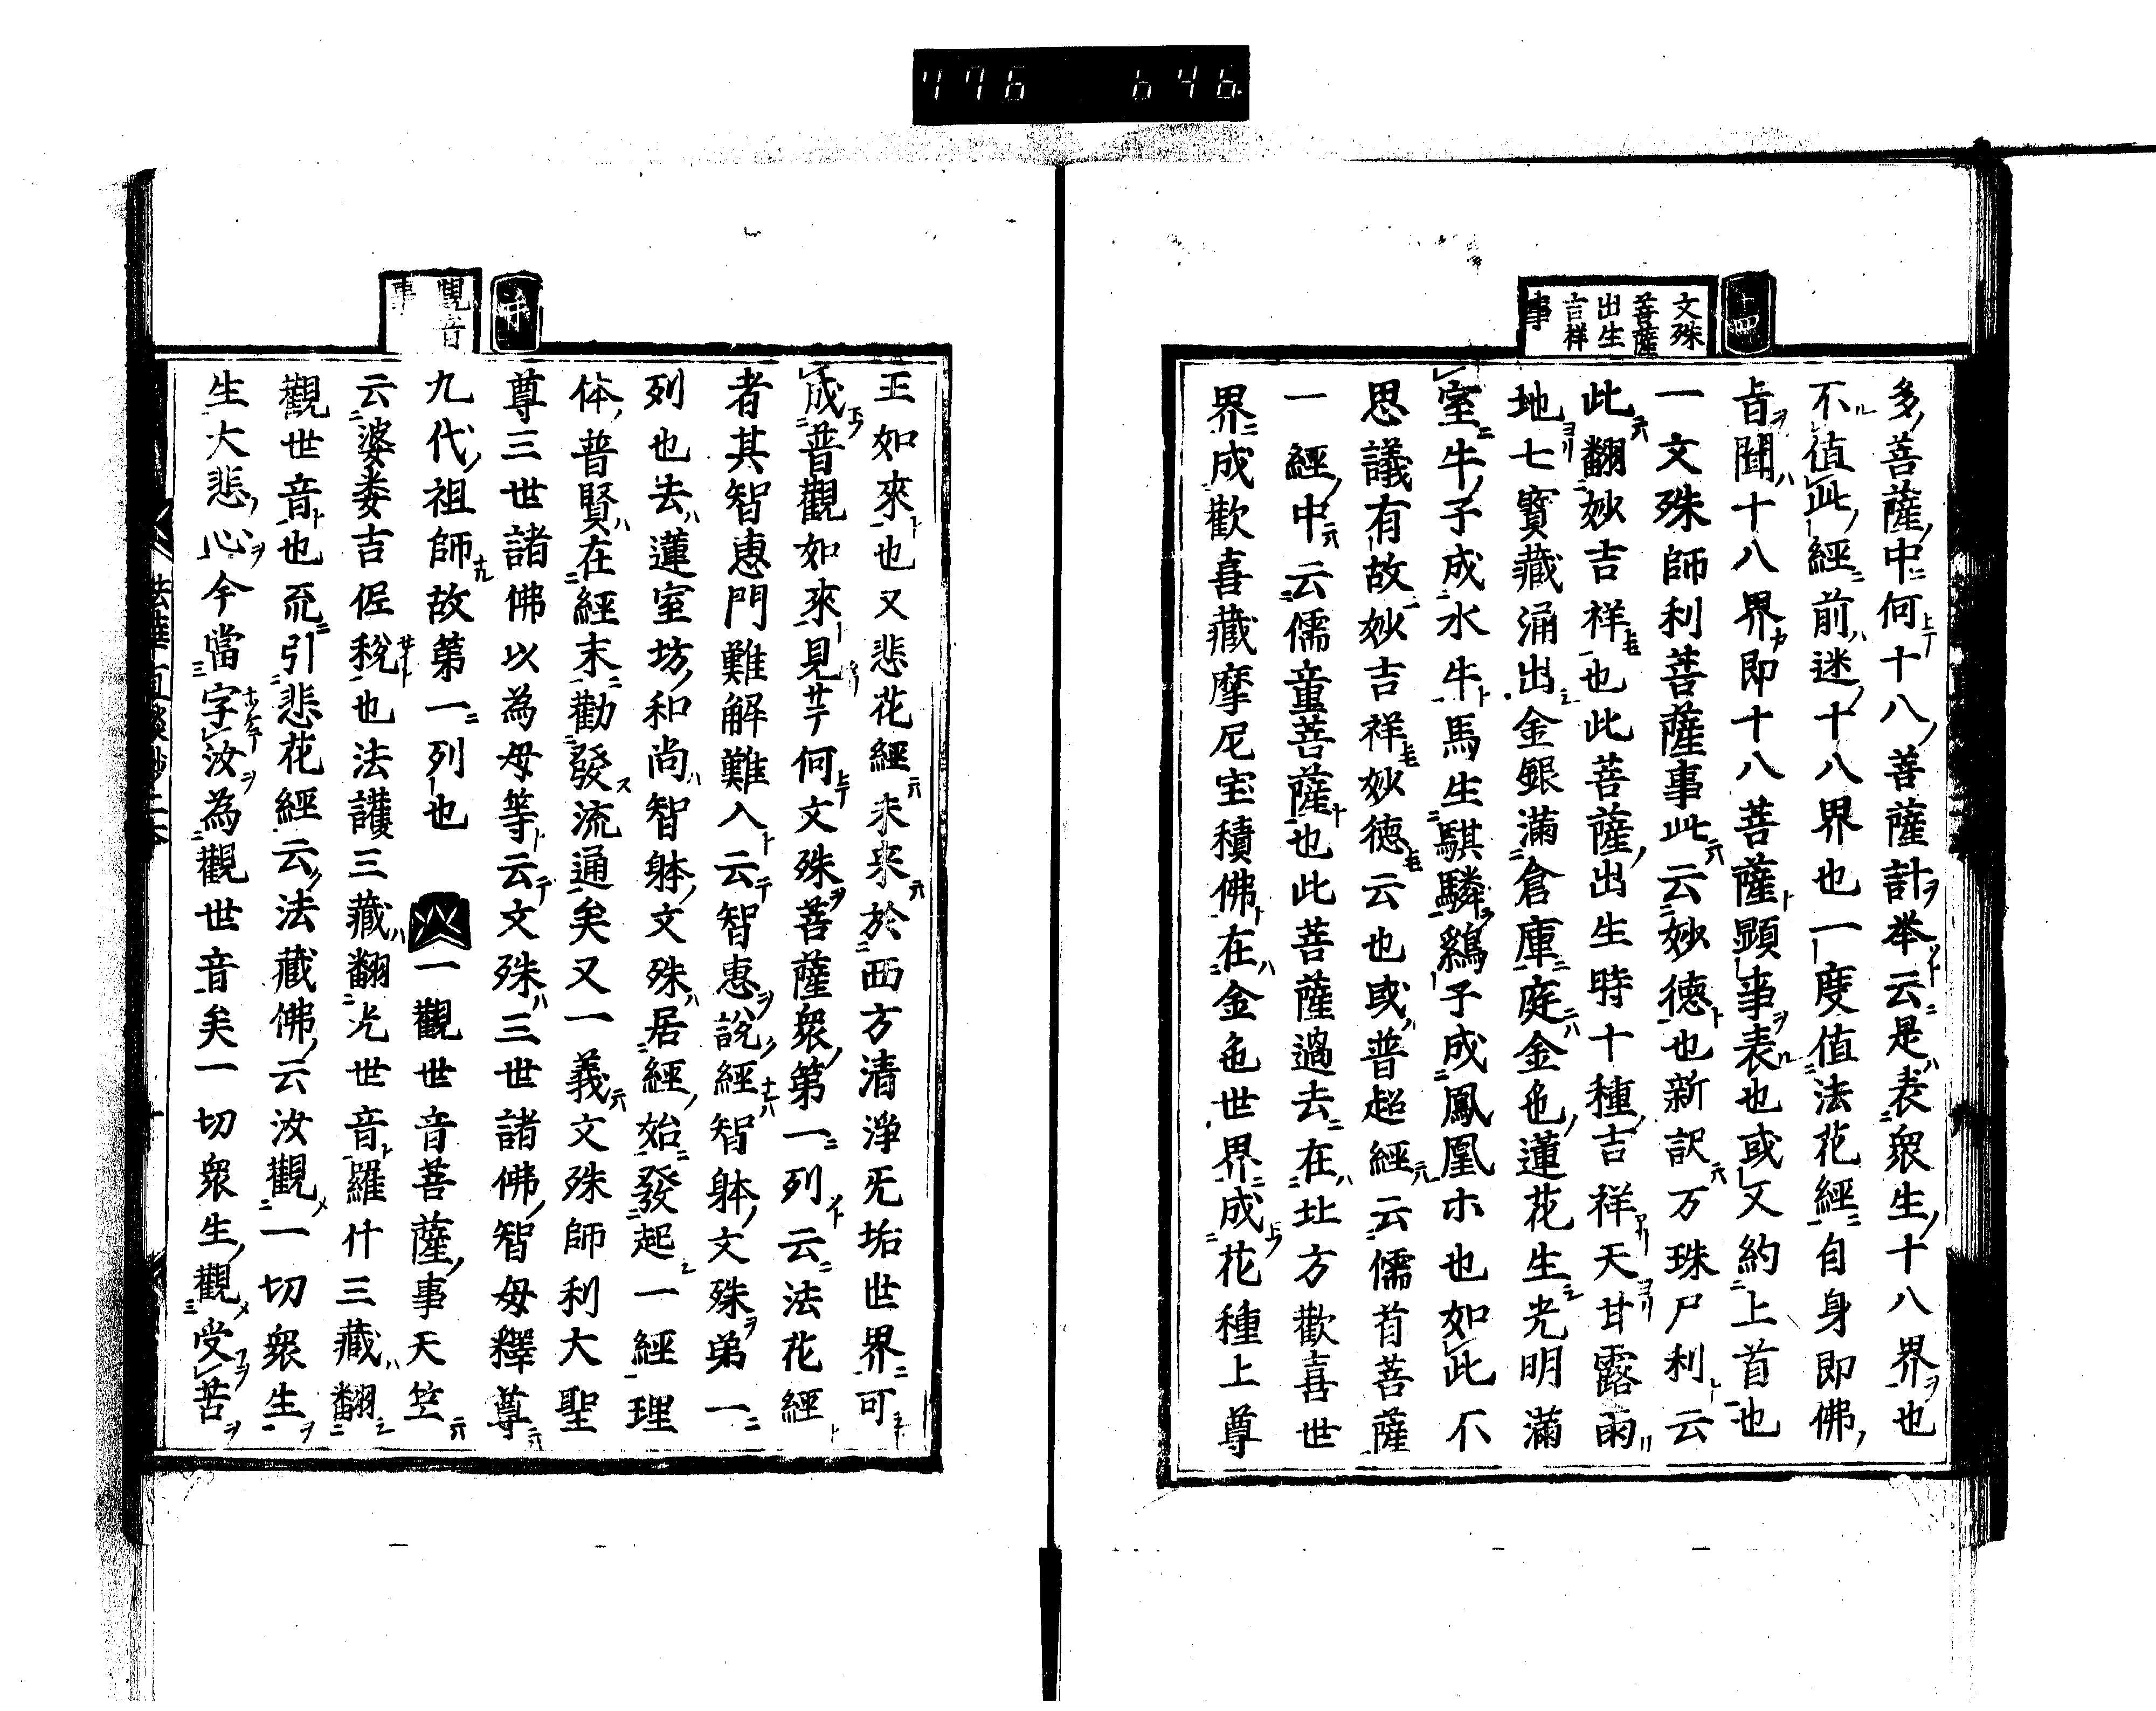 776 646
十四
文殊
菩薩
出生
吉祥
事
多菩薩中何十八菩薩計举云是表衆生十八界也
不値此經前迷十八界也一度値法花經自身即佛
旨聞十八界即十八菩薩顕事表也或又約上首也
一文殊師利菩薩事此云妙德也新訳万殊尸利云
此翻妙吉祥也此菩薩出生時十種吉祥天甘露雨
地七寳藏涌出金銀滿倉庫庭金色蓮花生光明滿
室牛子成水牛馬生騏驎鷄子成鳳凰ホ也如此不
思議有故妙吉祥妙德云也或普超經云儒首菩薩
一經中云儒童菩薩也此菩薩過去在北方歡喜世
界成歡喜藏摩尼宝積佛在金色世界成花種上尊
王如來也又悲花經未來於西方清淨无垢世界可
成普觀如來見サテ何文殊菩薩衆第一列云法花經
者其智惠門難解難入云智惠說經智躰文殊第一
列也去蓮室坊和尚智躰文殊居經始發起一經理
体普賢在經末勸發流通矣又一義文殊師利大聖
尊三世諸佛以為母等云文殊三世諸佛智母釋尊
九代祖師故第一列也 一觀世音菩薩事天竺
云婆婁吉低稅也法護三藏翻光世音羅什三藏翻
觀世音也而引悲花經云法藏佛云汝觀一切衆生
生大悲心今當字汝為觀世音矣一切衆生觀受苦
觀音
事